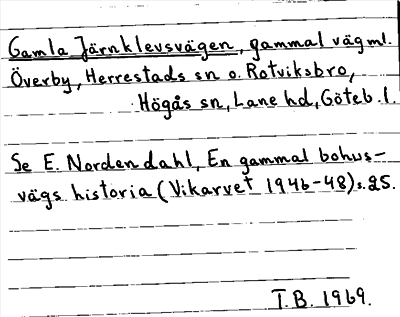 Gamla Järnklevsvägen, gammal väg ml.
Överby, Herrestads sn o. Rotviksbro,
Högås sn, Lane hd, Göteb. l.
Se E. Nordendahl, En gammal bohus-
vägs historia (Vikarvet 1946-48) s. 25.
T.B. 1969.